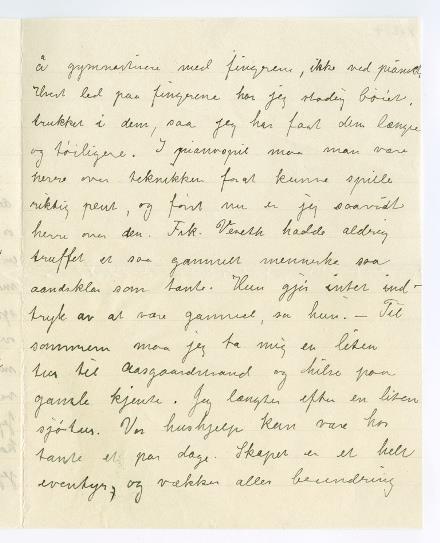 å gymnastisere med fingrene, ikke ved pianoet.
Hvert led paa fingrene har jeg stadig bøiet,
trukket i dem, saa jeg har faat dem længre
og tøieligere. I pianospil maa man være
herre over teknikken forat kunne spille
riktig pent, og først nu er jeg saavidt
herre over den. Frk. hadde aldrig
truffet et saa gammelt menneske saa
aandsklar som tante. Hun gjør intet ind-
tryk av at være gammel, sa hun. — Til
sommeren maa jeg ta mig en liten
tur til Aasgaardstrand og hilse paa
gamle kjente. Jeg længter efter en liten
sjøtur. Vor hushjelp kan være hos
tante et par dage. Skapet er et helt
eventyr, og vækker alles beundring